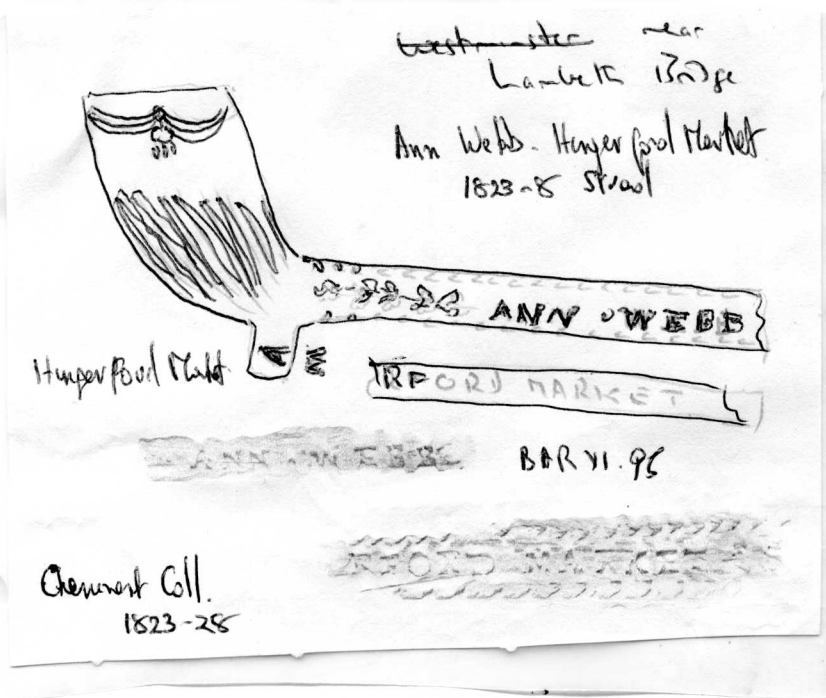 Westminster near
Lambeth Bridge
Ann Webb - Hungerford Market
1823-8 Strand
ANN · WEBB
Hungerford Markt
W
RFORD MARKET
ANN · WEBB
BAR VI. 95
RFORD MARKET
Coll.
1823-28